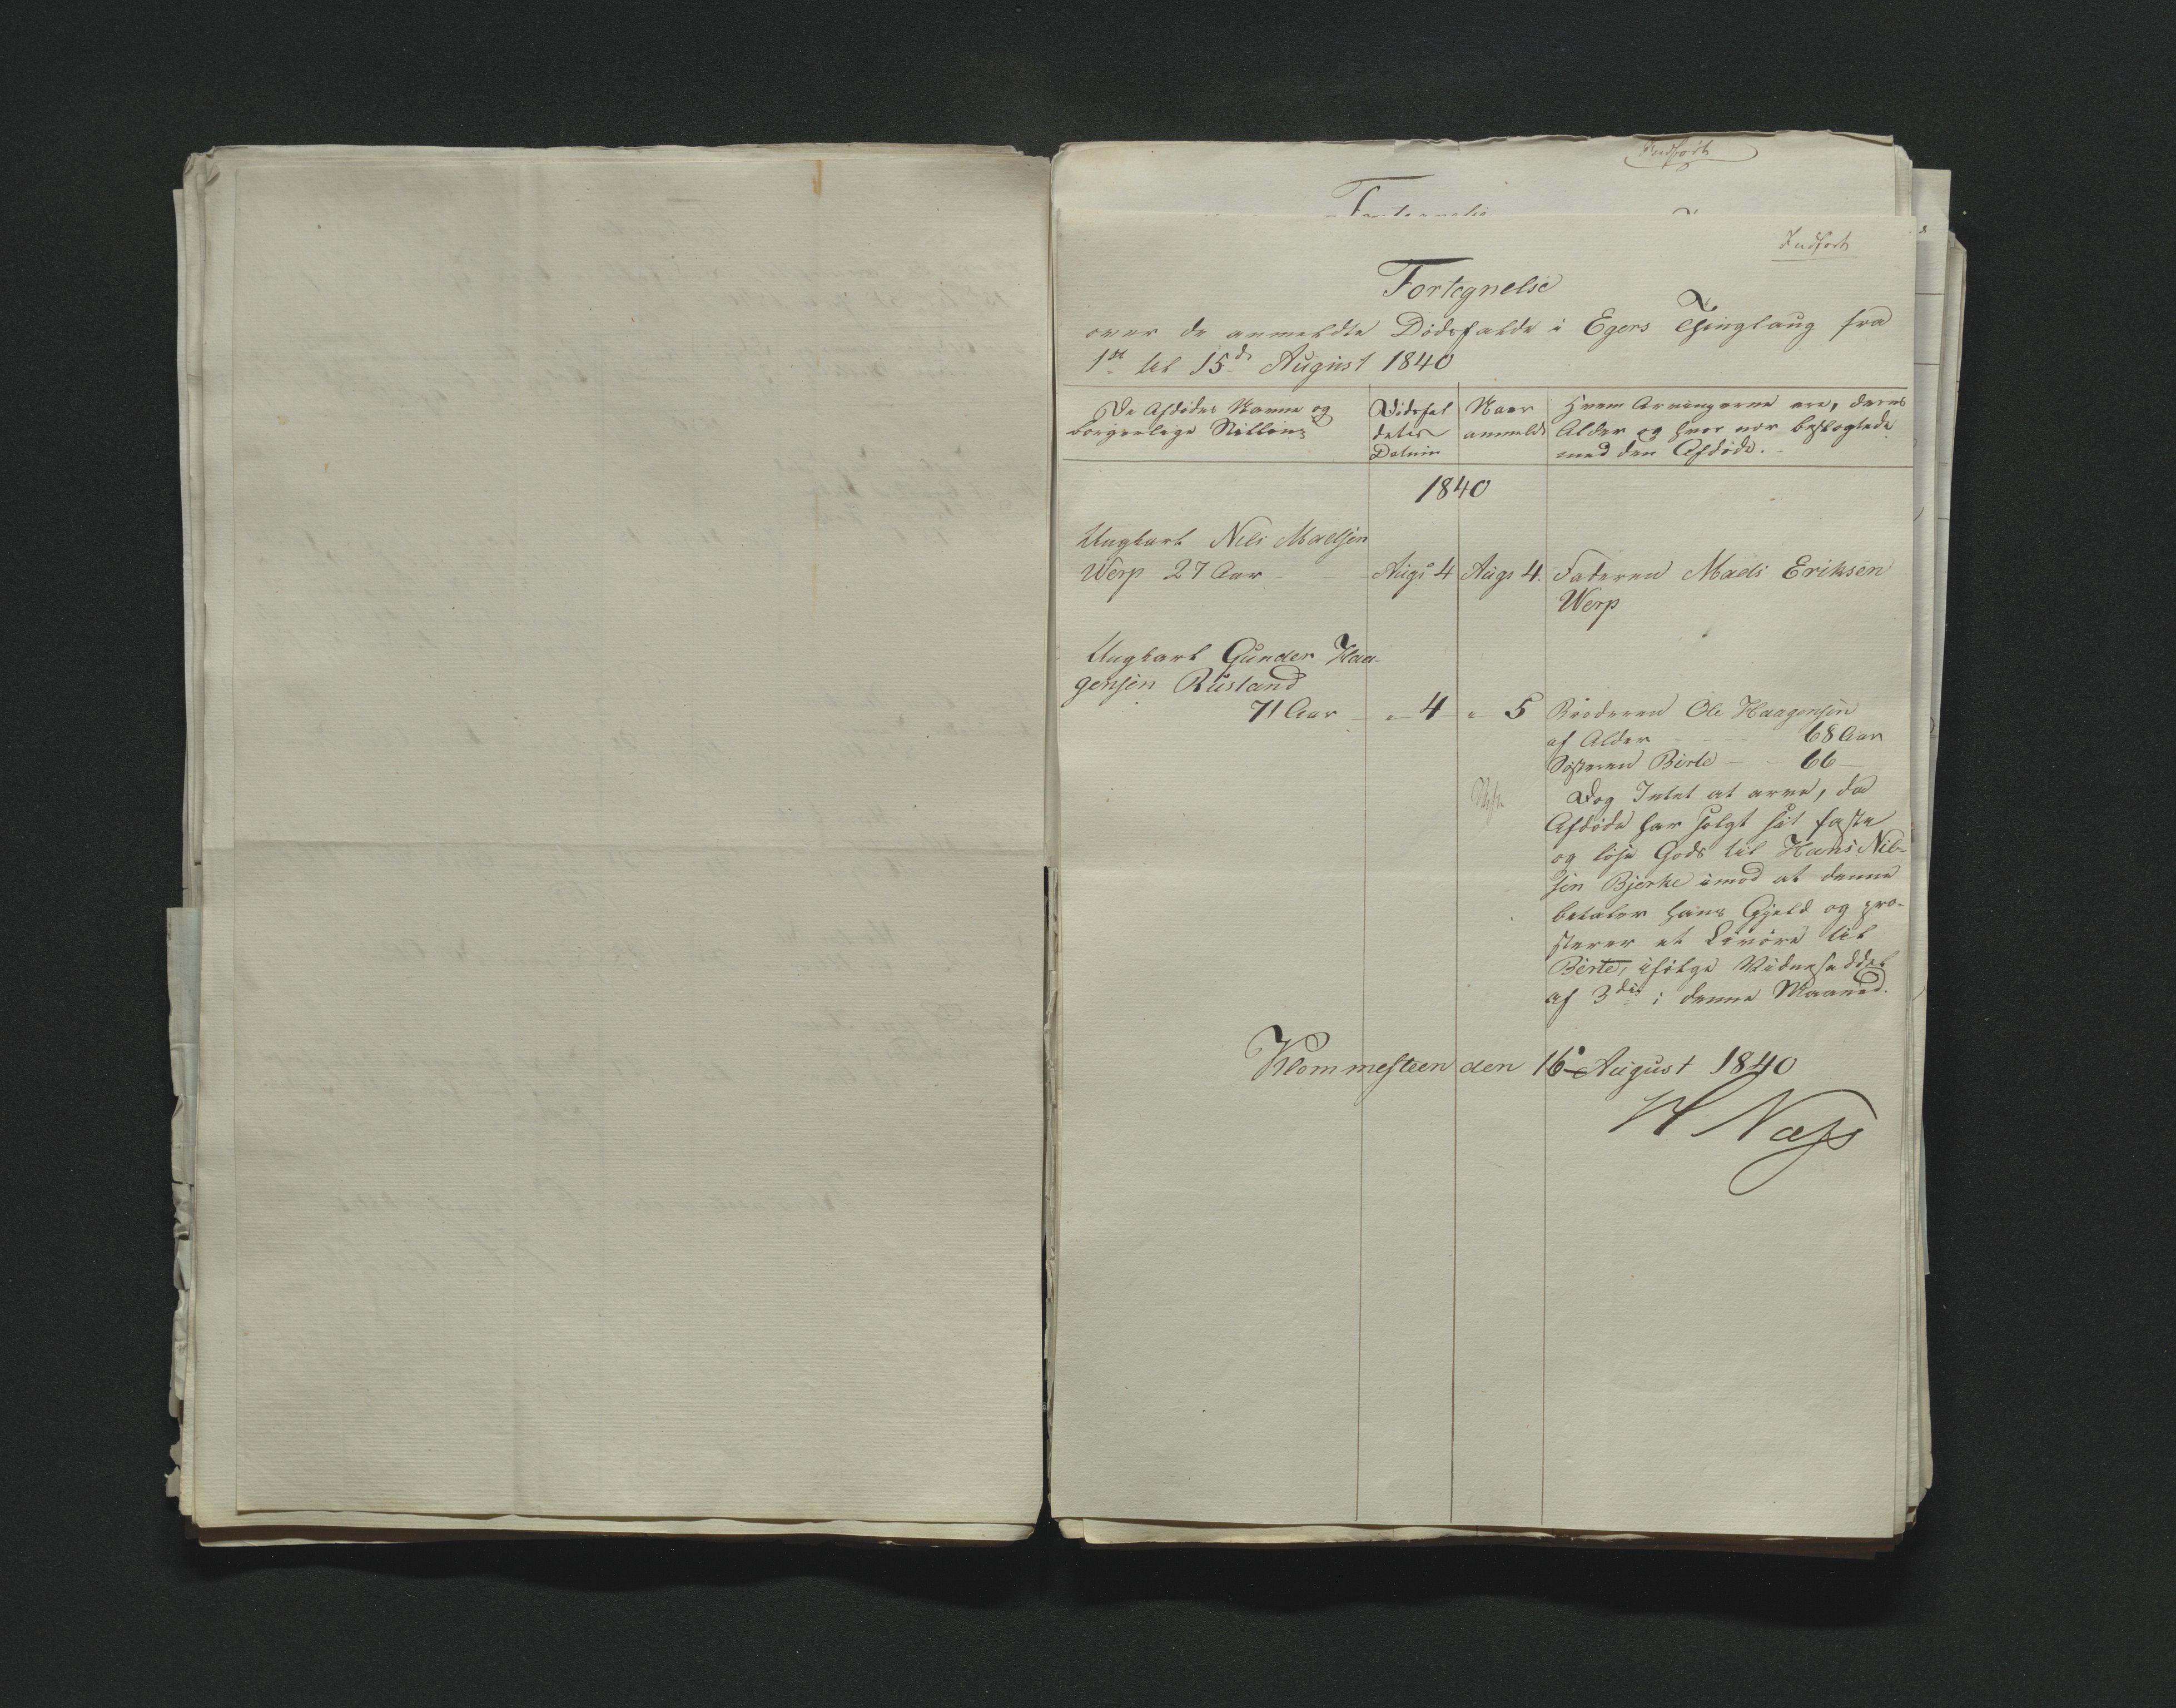 Indført
Fortegnelse
Indført
Fortegnelse
over de anmeldte Dødsfalde i Egers Thinglaug fra
1st til 15de August 1840
De Afdødes Navne og
borgerlige Stilling
Dødsfal
detes
Datum
Naar
anmeldt
Hvem Arvingerne ere, deres
Alder og hvor nær beslægtede
med den Afdøde.
1840
Ungkarl Nils Madsen
Werp 27 Aar
Augs 4
Augs 4.
Faderen Mads Eriksen
Werp
Ungkarl Gunder Haa-
gensen Rusland
71 Aar
" 4
" 5
Broderen Ole Haagensen
af Alder 68 Aar
Søsteren Birte 66
Dog Intet at arve, da
Afdøde har solgt sit faste
og løse Gods til Hans Nil-
sen Bjerke imod at denne
betaler hans Gjeld og præ-
sterer et Livøre til
Birte, ifølge Vidneseddel
af 3die i denne Maaned.
Klommesteen den 16 August 1840
H Næss